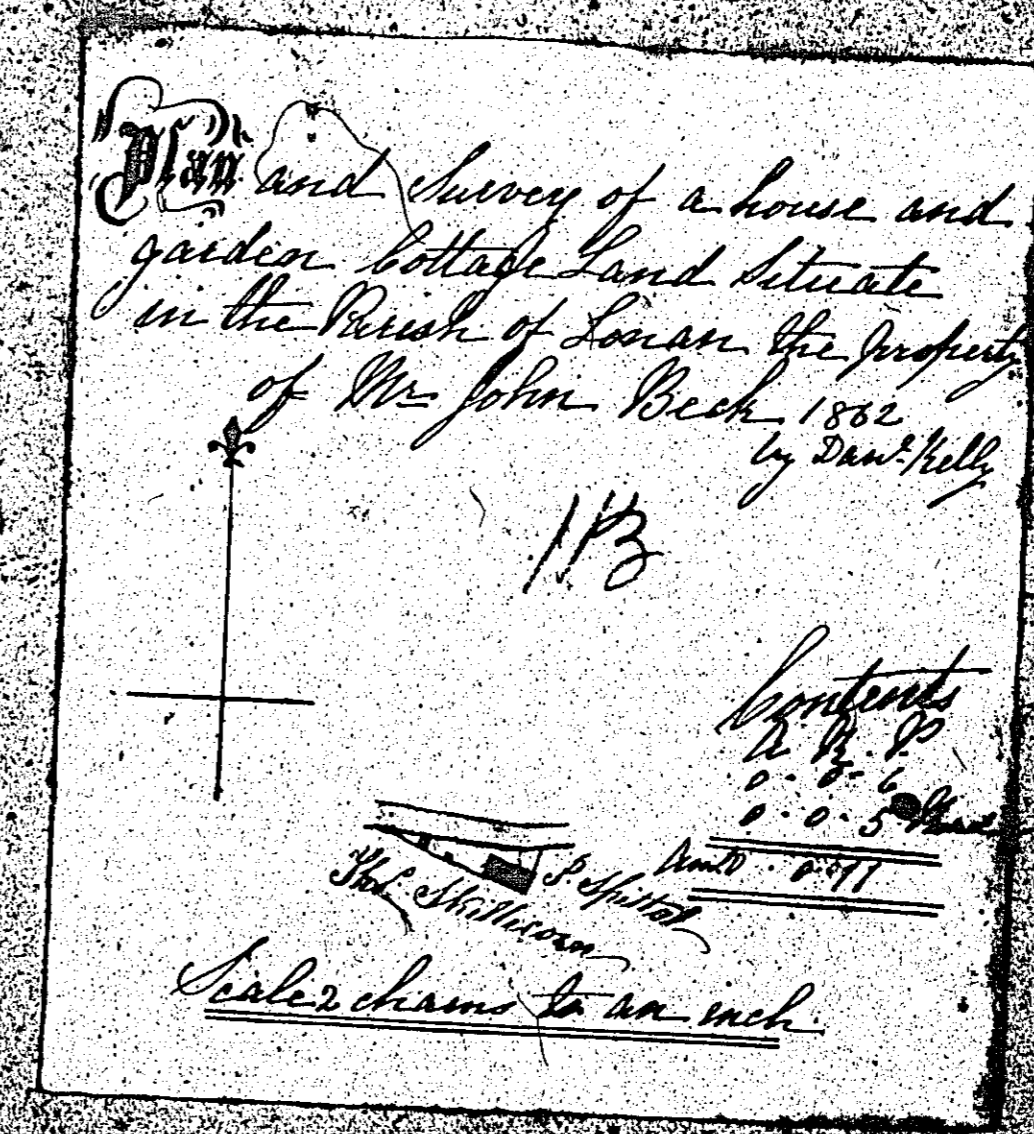 Plan and Survey of a house and
garden Cottage Land Situate
in the Parish of Lonan the Property
of Mr John Beck 1862
by Danl. Kelly
Contents
A. R. P
0 - 0 - 6
0 - 0 - 5
Amt 0 - 0 - 11
Thos. Skillicorn
P. Spittal
Scale 2 chains to an inch.